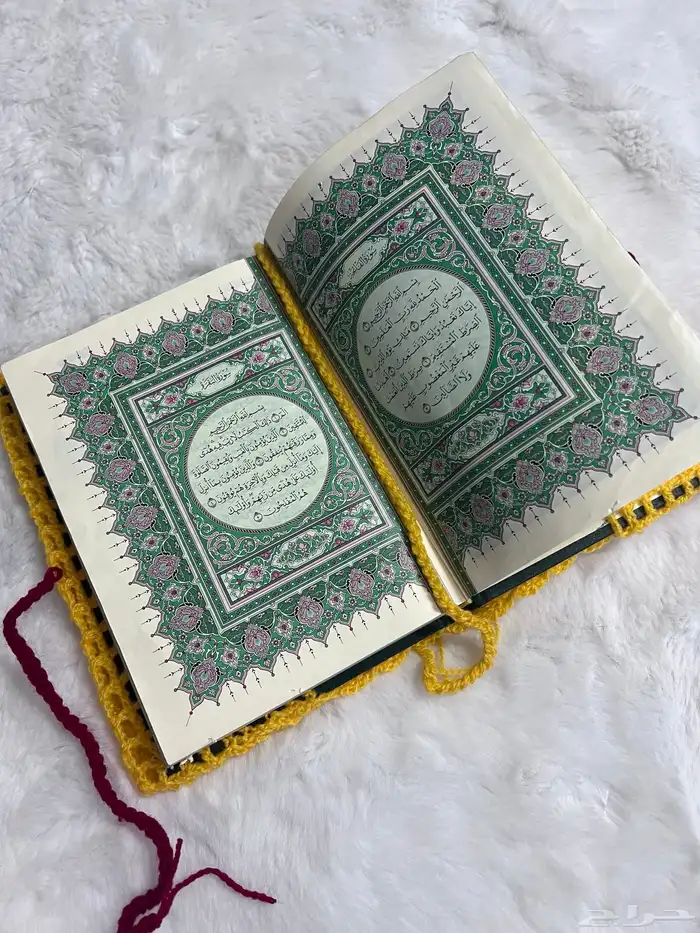 سُورَةُ الْفَاتِحَةِ
بِسْمِ اللَّهِ الرَّحْمَٰنِ الرَّحِيمِ ١
الْحَمْدُ لِلَّهِ رَبِّ الْعَالَمِينَ ٢
الرَّحْمَٰنِ الرَّحِيمِ ٣ مَالِكِ يَوْمِ الدِّينِ ٤
إِيَّاكَ نَعْبُدُ وَإِيَّاكَ نَسْتَعِينُ ٥ اهْدِنَا
الصِّرَاطَ الْمُسْتَقِيمَ ٦ صِرَاطَ الَّذِينَ أَنْعَمْتَ
عَلَيْهِمْ غَيْرِ الْمَغْضُوبِ عَلَيْهِمْ
وَلَا الضَّالِّينَ ٧
سُورَةُ الْبَقَرَةِ
بِسْمِ اللَّهِ الرَّحْمَٰنِ الرَّحِيمِ
الم ١ ذَٰلِكَ الْكِتَابُ لَا رَيْبَ فِيهِ هُدًى
لِلْمُتَّقِينَ ٢ الَّذِينَ يُؤْمِنُونَ بِالْغَيْبِ وَيُقِيمُونَ الصَّلَاةَ
وَمِمَّا رَزَقْنَاهُمْ يُنْفِقُونَ ٣ وَالَّذِينَ يُؤْمِنُونَ بِمَا أُنْزِلَ
إِلَيْكَ وَمَا أُنْزِلَ مِنْ قَبْلِكَ وَبِالْآخِرَةِ هُمْ يُوقِنُونَ ٤
أُولَٰئِكَ عَلَىٰ هُدًى مِنْ رَبِّهِمْ وَأُولَٰئِكَ
هُمُ الْمُفْلِحُونَ ٥
حراج